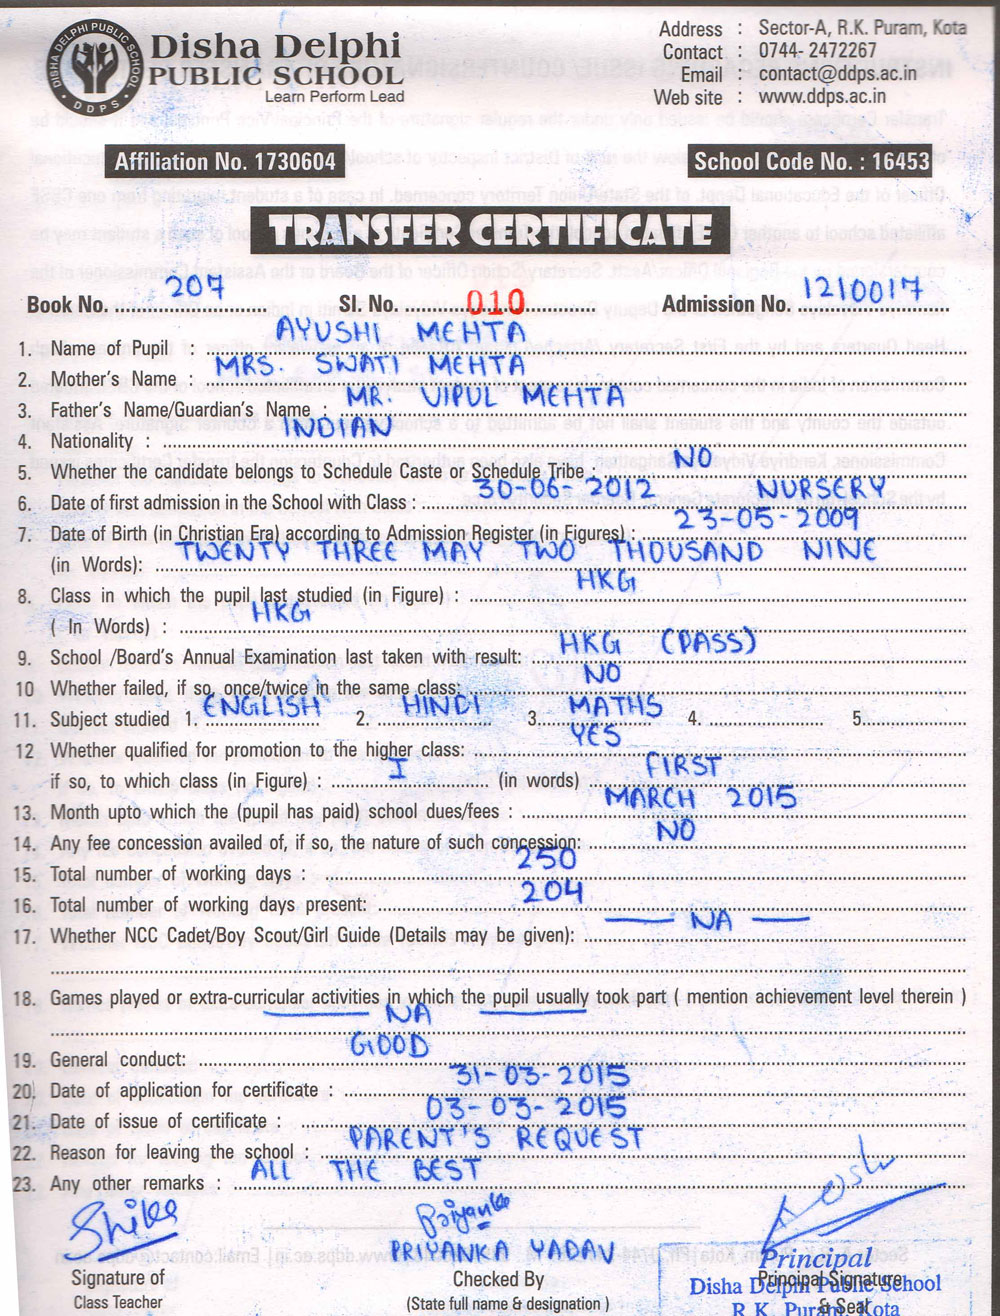 DISHA DELPHI PUBLIC SCHOOL
DDPS
Disha Delphi
PUBLIC SCHOOL
Learn Perform Lead
Address : Sector-A, R.K. Puram, Kota
Contact : 0744- 2472267
Email : contact@ddps.ac.in
Web site : www.ddps.ac.in
Affiliation No. 1730604 School Code No. : 16453
TRANSFER CERTIFICATE
Book No. 207 Sl. No. 010 Admission No. 1210017
1. Name of Pupil : AYUSHI MEHTA
2. Mother's Name : MRS. SWATI MEHTA
3. Father's Name/Guardian's Name : MR. VIPUL MEHTA
4. Nationality : INDIAN
5. Whether the candidate belongs to Schedule Caste or Schedule Tribe : NO
6. Date of first admission in the School with Class : 30-06-2012 NURSERY
7. Date of Birth (in Christian Era) according to Admission Register (in Figures) : 23-05-2009
(in Words): TWENTY THREE MAY TWO THOUSAND NINE
8. Class in which the pupil last studied (in Figure) : HKG
( In Words) : HKG
9. School /Board's Annual Examination last taken with result: HKG (PASS)
10 Whether failed, if so, once/twice in the same class: NO
11. Subject studied 1. ENGLISH 2. HINDI 3. MATHS 4. 5.
12 Whether qualified for promotion to the higher class: YES
if so, to which class (in Figure) : I (in words) FIRST
13. Month upto which the (pupil has paid) school dues/fees : MARCH 2015
14. Any fee concession availed of, if so, the nature of such concession: NO
15. Total number of working days : 250
16. Total number of working days present: 204
17. Whether NCC Cadet/Boy Scout/Girl Guide (Details may be given): NA
18. Games played or extra-curricular activities in which the pupil usually took part ( mention achievement level therein )
NA
19. General conduct: GOOD
20. Date of application for certificate : 31-03-2015
21. Date of issue of certificate : 03-03-2015
22. Reason for leaving the school : PARENT'S REQUEST
23. Any other remarks : ALL THE BEST
Shika Priyanka
PRIYANKA YADAV
Principal
Signature of Checked By Principal Signature
Disha Delphi Public School
Class Teacher (State full name & designation ) & Seal
R.K. Puram, Kota